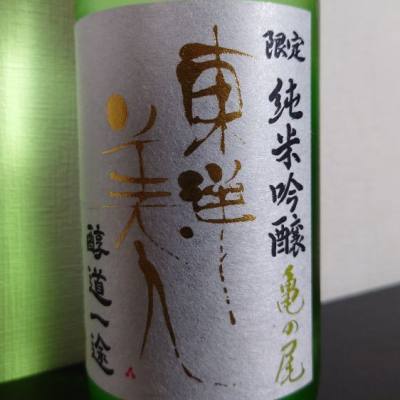 限定 純米吟醸 亀の尾
東洋美人
醇道一途